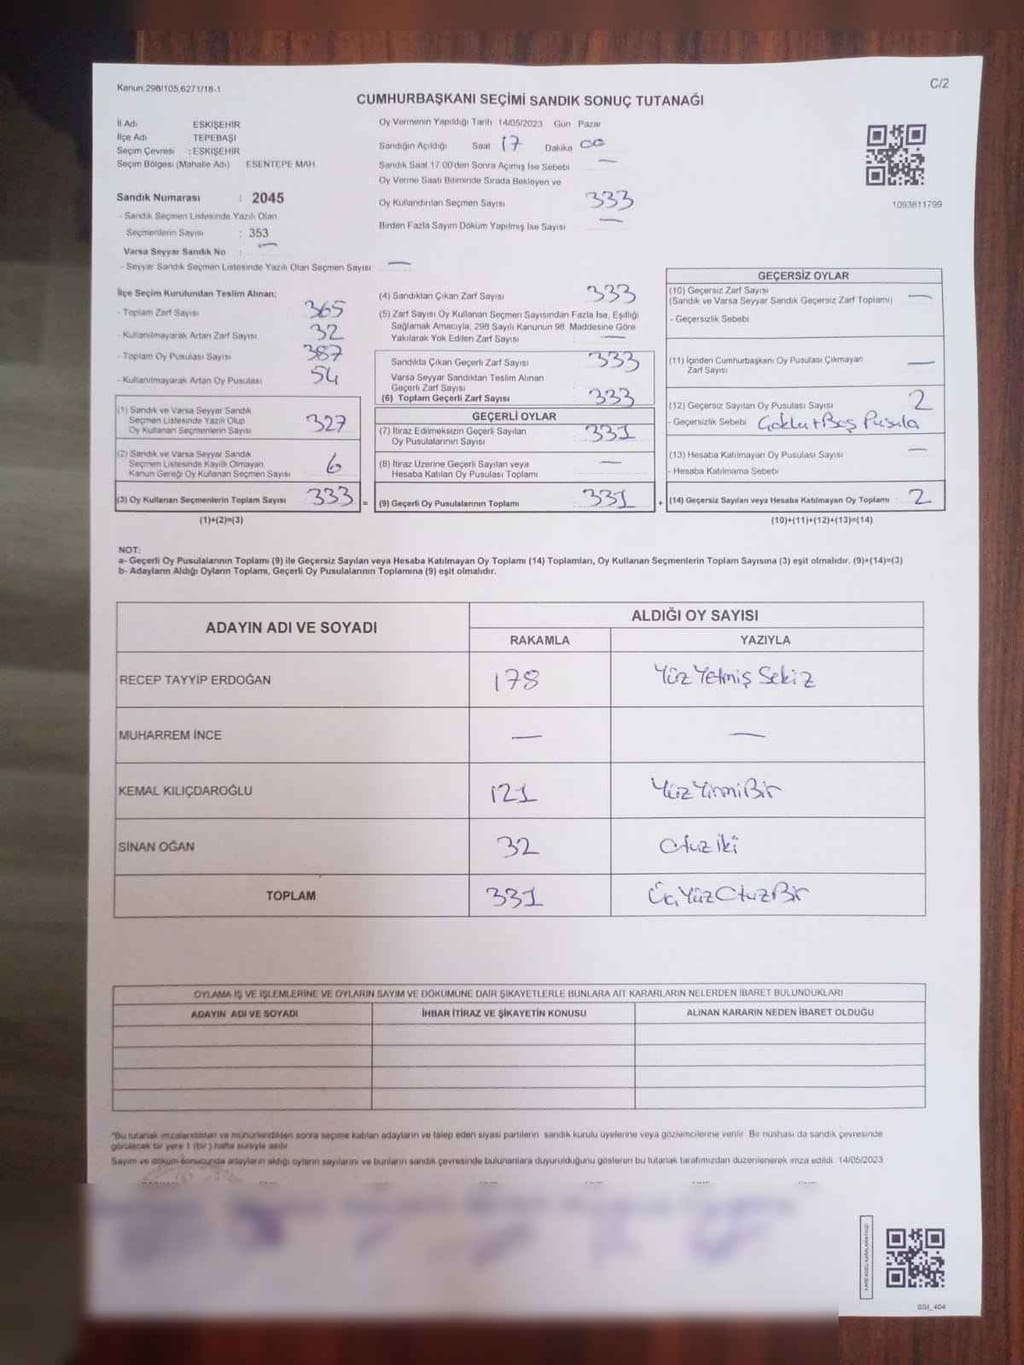 Kanun 298/105,6271/18-1
C/2
CUMHURBAŞKANI SEÇİMİ SANDIK SONUÇ TUTANAĞI
İl Adı ESKİŞEHİR
İlçe Adı TEPEBAŞI
Seçim Çevresi : ESKİŞEHİR
Seçim Bölgesi (Mahalle Adı) ESENTEPE MAH.
Sandık Numarası : 2045
- Sandık Seçmen Listesinde Yazılı Olan
Seçmenlerin Sayısı : 353
Varsa Seyyar Sandık No : —
- Seyyar Sandık Seçmen Listesinde Yazılı Olan Seçmen Sayısı —
Oy Vermenin Yapıldığı Tarih 14/05/2023 Gün Pazar
Sandığın Açıldığı Saat 17 Dakika 00
Sandık Saat 17:00'den Sonra Açılmış İse Sebebi —
Oy Verme Saati Bitiminde Sırada Bekleyen ve
Oy Kullandırılan Seçmen Sayısı 333
Birden Fazla Sayım Döküm Yapılmış İse Sayısı —
1093811799
İlçe Seçim Kurulundan Teslim Alınan;
- Toplam Zarf Sayısı 365
- Kullanılmayarak Artan Zarf Sayısı 32
- Toplam Oy Pusulası Sayısı 387
- Kullanılmayarak Artan Oy Pusulası 54
(1) Sandık ve Varsa Seyyar Sandık
Seçmen Listesinde Yazılı Olup
Oy Kullanan Seçmenlerin Sayısı 327
(2) Sandık ve Varsa Seyyar Sandık
Seçmen Listesinde Kayıtlı Olmayan
Kanun Gereği Oy Kullanan Seçmen Sayısı 6
(3) Oy Kullanan Seçmenlerin Toplam Sayısı 333 =
(1)+(2)=(3)
(4) Sandıktan Çıkan Zarf Sayısı 333
(5) Zarf Sayısı Oy Kullanan Seçmen Sayısından Fazla İse, Eşitliği
Sağlamak Amacıyla, 298 Sayılı Kanunun 98. Maddesine Göre
Yakılarak Yok Edilen Zarf Sayısı —
Sandıkta Çıkan Geçerli Zarf Sayısı 333
Varsa Seyyar Sandıktan Teslim Alınan
Geçerli Zarf Sayısı
(6) Toplam Geçerli Zarf Sayısı 333
GEÇERLİ OYLAR
(7) İtiraz Edilmeksizin Geçerli Sayılan
Oy Pusulalarının Sayısı 331
(8) İtiraz Üzerine Geçerli Sayılan veya
Hesaba Katılan Oy Pusulası Toplamı —
(9) Geçerli Oy Pusulalarının Toplamı 331 +
GEÇERSİZ OYLAR
(10) Geçersiz Zarf Sayısı
(Sandık ve Varsa Seyyar Sandık Geçersiz Zarf Toplamı) —
- Geçersizlik Sebebi
(11) İçinden Cumhurbaşkanı Oy Pusulası Çıkmayan
Zarf Sayısı —
(12) Geçersiz Sayılan Oy Pusulası Sayısı 2
- Geçersizlik Sebebi Çoklu+Boş Pusula
(13) Hesaba Katılmayan Oy Pusulası Sayısı —
- Hesaba Katılmama Sebebi
(14) Geçersiz Sayılan veya Hesaba Katılmayan Oy Toplamı 2
(10)+(11)+(12)+(13)=(14)
NOT:
a- Geçerli Oy Pusulalarının Toplamı (9) ile Geçersiz Sayılan veya Hesaba Katılmayan Oy Toplamı (14) Toplamları, Oy Kullanan Seçmenlerin Toplam Sayısına (3) eşit olmalıdır. (9)+(14)=(3)
b- Adayların Aldığı Oyların Toplamı, Geçerli Oy Pusulalarının Toplamına (9) eşit olmalıdır.
ADAYIN ADI VE SOYADI ALDIĞI OY SAYISI
RAKAMLA YAZIYLA
RECEP TAYYİP ERDOĞAN 178 Yüz Yetmiş Sekiz
MUHARREM İNCE — —
KEMAL KILIÇDAROĞLU 121 Yüz Yirmi Bir
SİNAN OĞAN 32 Otuz iki
TOPLAM 331 Üç Yüz Otuz Bir
OYLAMA İŞ VE İŞLEMLERİNE VE OYLARIN SAYIM VE DÖKÜMÜNE DAİR ŞİKAYETLERLE BUNLARA AİT KARARLARIN NELERDEN İBARET BULUNDUKLARI
ADAYIN ADI VE SOYADI İHBAR İTİRAZ VE ŞİKAYETİN KONUSU ALINAN KARARIN NEDEN İBARET OLDUĞU
"Bu tutanak imzalandıktan ve mühürlendikten sonra seçime katılan adayların ve talep eden siyasi partilerin sandık kurulu üyelerine veya gözlemcilerine verilir. Bir nüshası da sandık çevresinde
görülecek bir yere 1 (bir) hafta süreyle asılır.
Sayım ve döküm sonucunda adayların aldığı oyların sayılarını ve bunların sandık çevresinde bulunanlara duyurulduğunu gösteren bu tutanak tarafımızdan düzenlenerek imza edildi. 14/05/2023